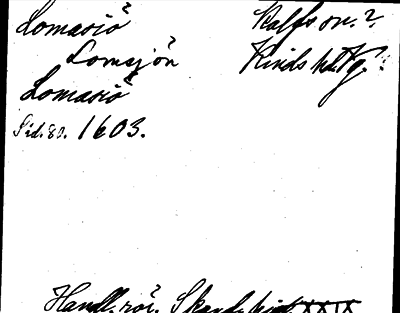 Lomasiö? Kalfs sn.?
Lomsjön? Kinds hd. Vg.
Lomasiö?
Sid. 80. 1603.
Handl. rör. Skand. hist. XXIX